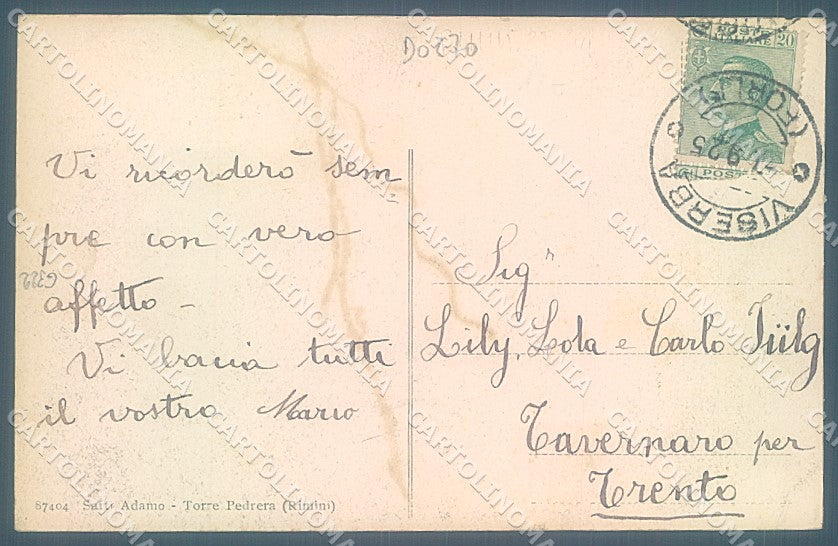 Do 270
POSTE ITALIANE 20
VISERBA (FORLÌ)
9.25
POST
Vi ricorderò sem-
pre con vero
affetto -
Vi bacia tutti
il vostro Mario
Sigri
Lily, Lola e Carlo Jülg
Tavernaro per
Trento
87404 Saiti Adamo - Torre Pedrera (Rimini)
CARTOLINOMANIA